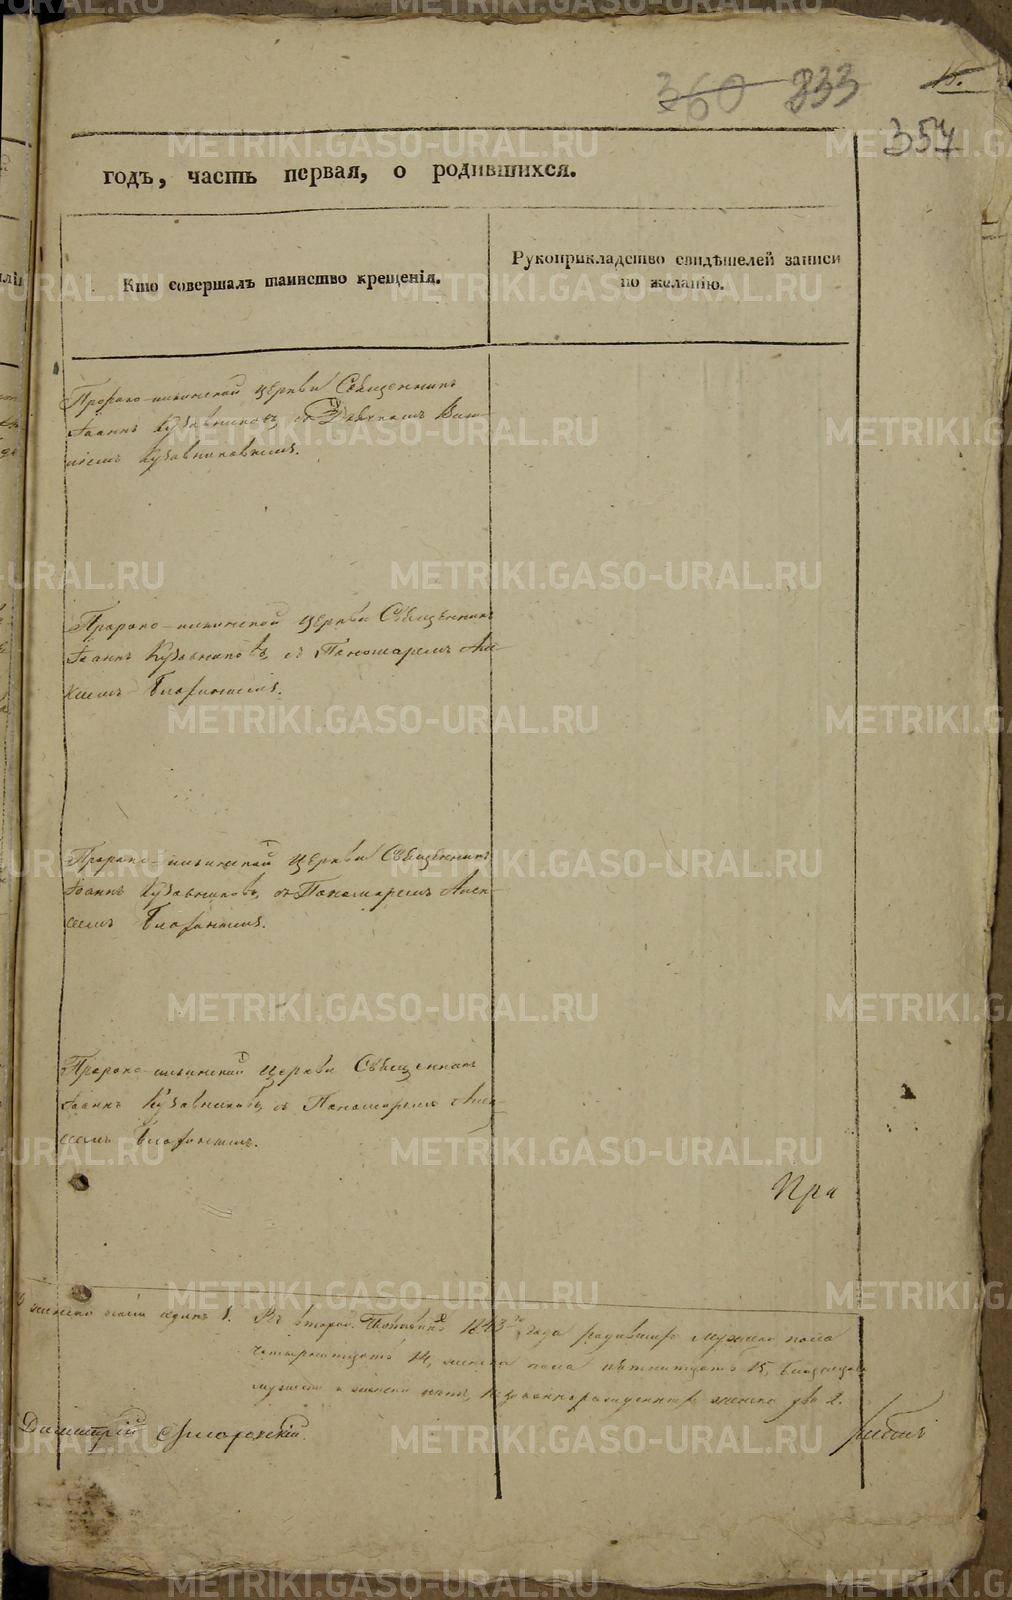 15.
360 833
357
годъ, часть первая, о родившихся.
Кто совершалъ таинство крещенія.
Рукоприкладство свидѣтелей записи
по желанію.
Пророко-ильинской церкви Священникъ
Іоаннъ Кузовниковъ, съ
Кузовниковымъ.
Пророко-ильинской церкви Священникъ
Іоаннъ Кузовниковъ, съ Пономаремъ Але-
ксѣемъ
Пророко-ильинской церкви Священникъ
Іоаннъ Кузовниковъ, съ Пономаремъ Алек-
сѣемъ
Пророко-ильинской церкви Священникъ
Іоаннъ Кузовниковъ, съ Пономаремъ Алек-
сѣемъ
При
одинъ 1. Въ второй Половинѣ 1843го года родившихся мужеска пола
четырнатцать 14, женска пола пятнатцать 15,
женска двѣ 2.
Димитрій
METRIKI.GASO-URAL.RU